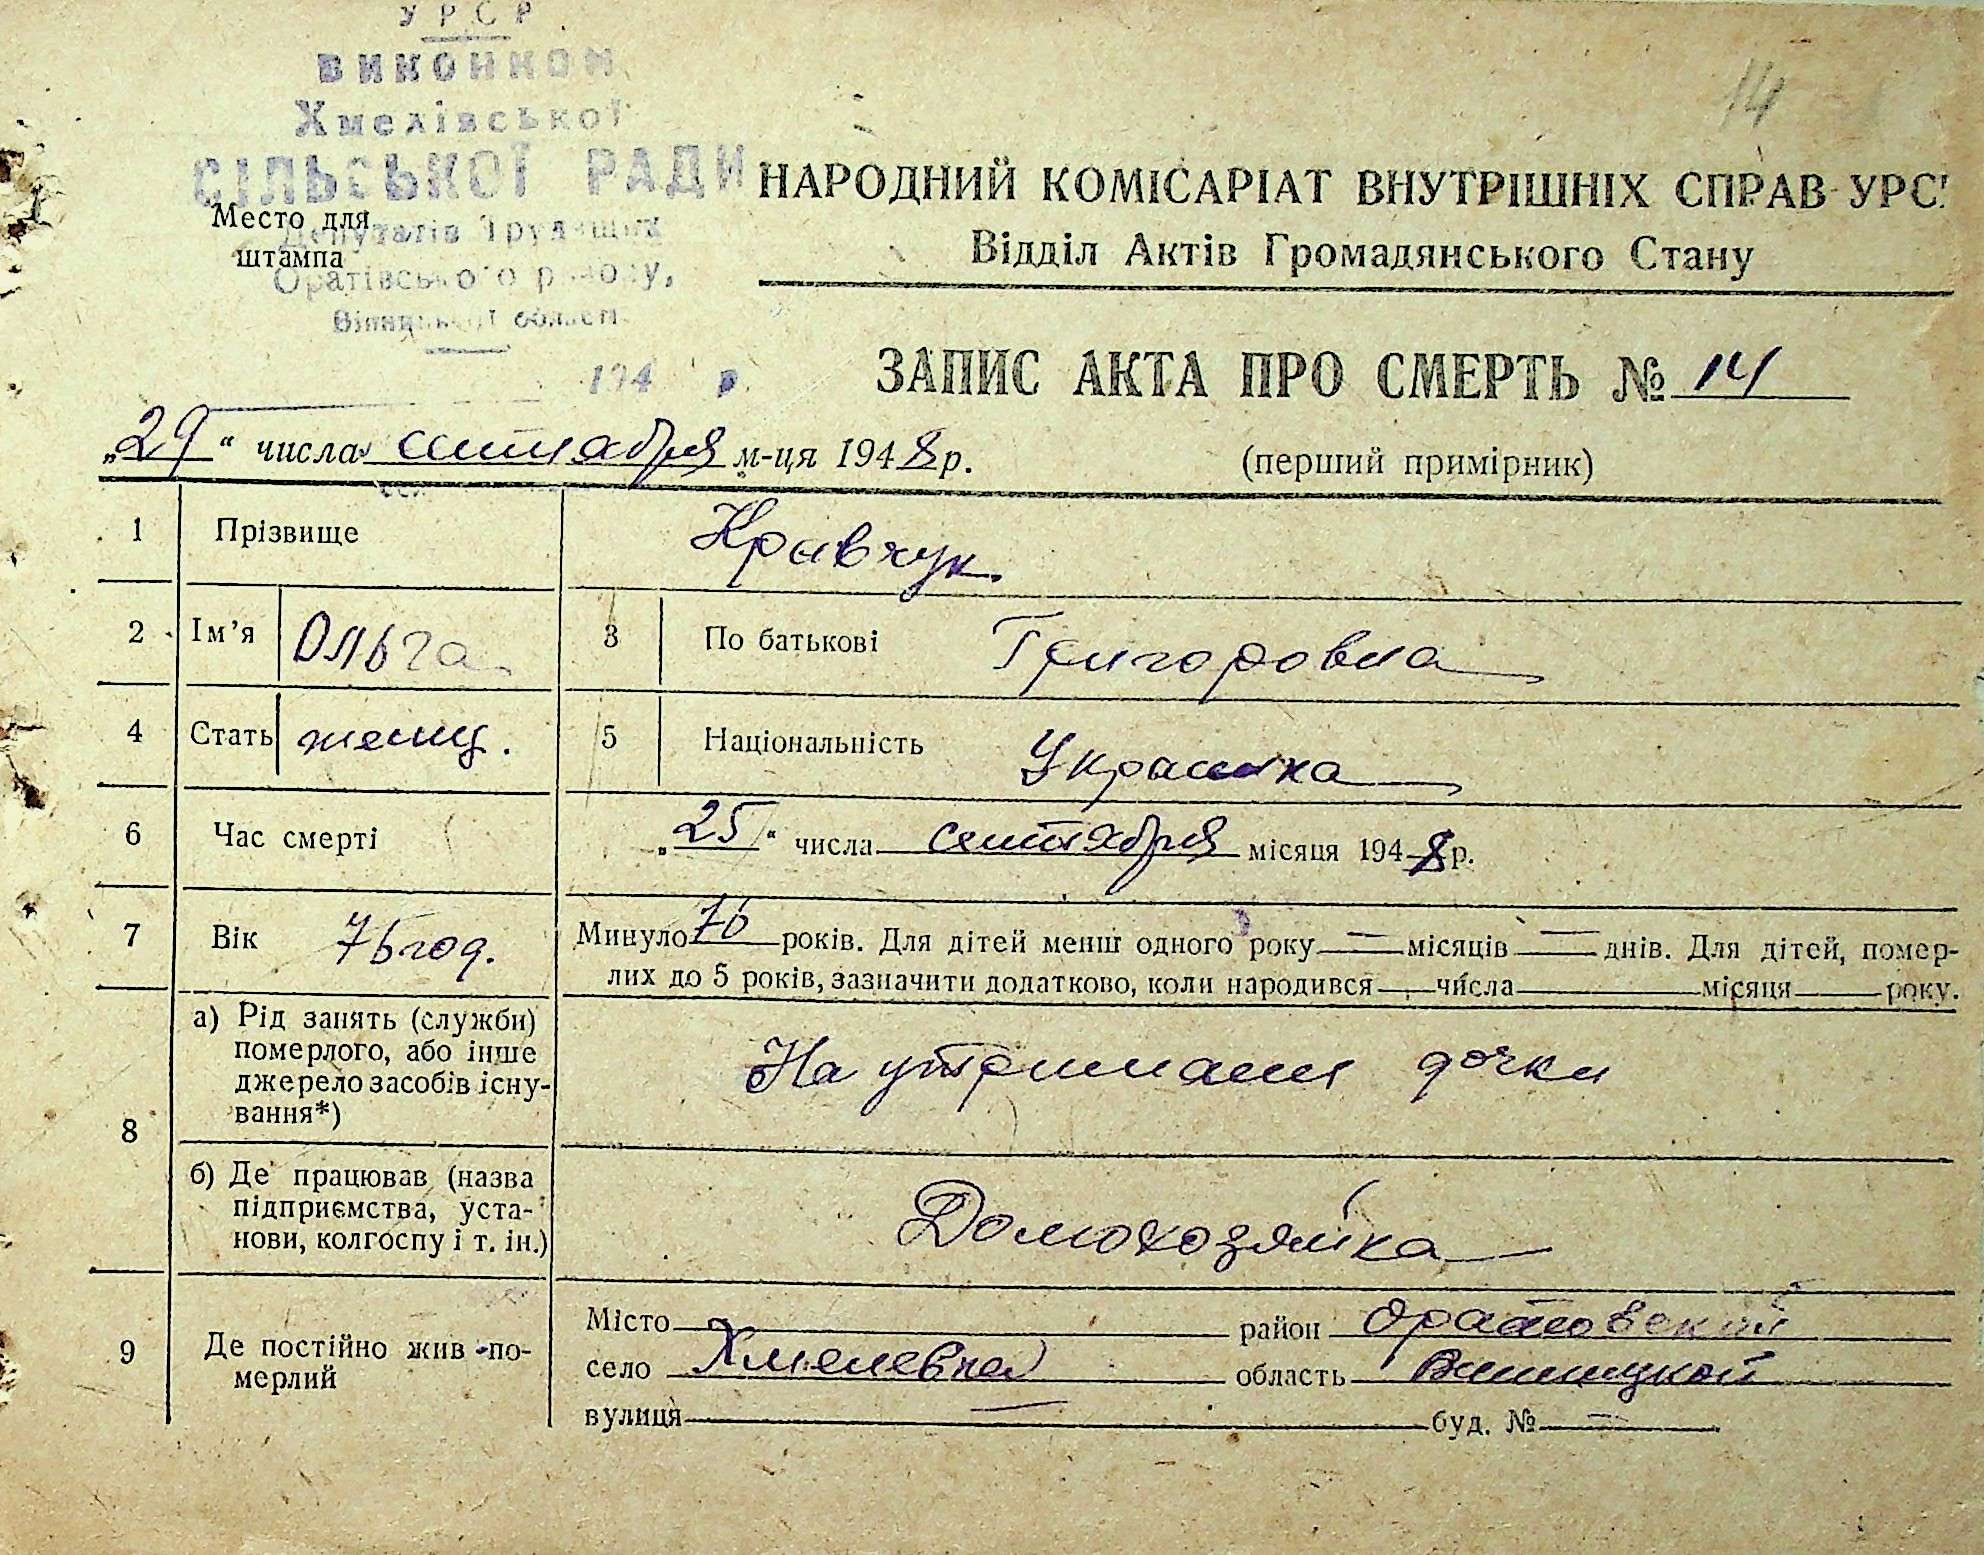 УРСР
ВИКОНКОМ
Хмелівської
СІЛЬСЬКОЇ РАДИ
Депутатів Трудящих
Оратівського району,
Вінницької області
194 р.
14
Место для
штампа
НАРОДНИЙ КОМІСАРІАТ ВНУТРІШНІХ СПРАВ УРС
Відділ Актів Громадянського Стану
ЗАПИС АКТА ПРО СМЕРТЬ № 14
„29“ числа сентября м-ця 1948 р.
(перший примірник)
1 Прізвище Кравчук
2 Ім’я Ольга 3 По батькові Григоровна
4 Стать женщ. 5 Національність Украинка
6 Час смерті „25“ числа сентября місяця 1948 р.
7 Вік 76 год. Минуло 76 років. Для дітей менш одного року — місяців — днів. Для дітей, помер-
лих до 5 років, зазначити додатково, коли народився числа місяця року.
8 а) Рід занять (служби)
померлого, або інше
джерело засобів існу-
вання*)
На утримании дочки
б) Де працював (назва
підприємства, уста-
нови, колгоспу і т. ін.)
Домохозяйка
9 Де постійно жив по-
мерлий
Місто район Оратовский
село Хмелевка область Винницкой
вулиця — буд. № —